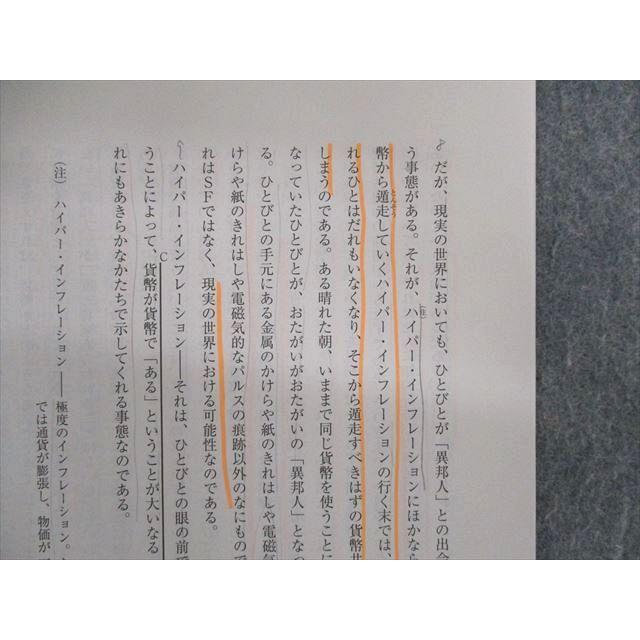 8
だが、現実の世界においても、ひとびとが「異邦人」との出会
う事態がある。それが、ハイパー・インフレーションにほかなら
(注)
幣から遁走していくハイパー・インフレーションの行く末では、
とんそう
れるひとはだれもいなくなり、そこから遁走すべきはずの貨幣共
しまうのである。ある晴れた朝、いままで同じ貨幣を使うことに
なっていたひとびとが、おたがいがおたがいの「異邦人」となっ
る。ひとびとの手元にある金属のかけらや紙のきれはしや電磁気
けらや紙のきれはしや電磁気的なパルスの痕跡以外のなにもので
れはSFではなく、現実の世界における可能性なのである。
ハイパー・インフレーション――それは、ひとびとの眼の前で
うことによって、貨幣が貨幣で「ある」ということが大いなる
C
れにもあきらかなかたちで示してくれる事態なのである。
(注) ハイパー・インフレーション――極度のインフレーション。
では通貨が膨張し、物価が